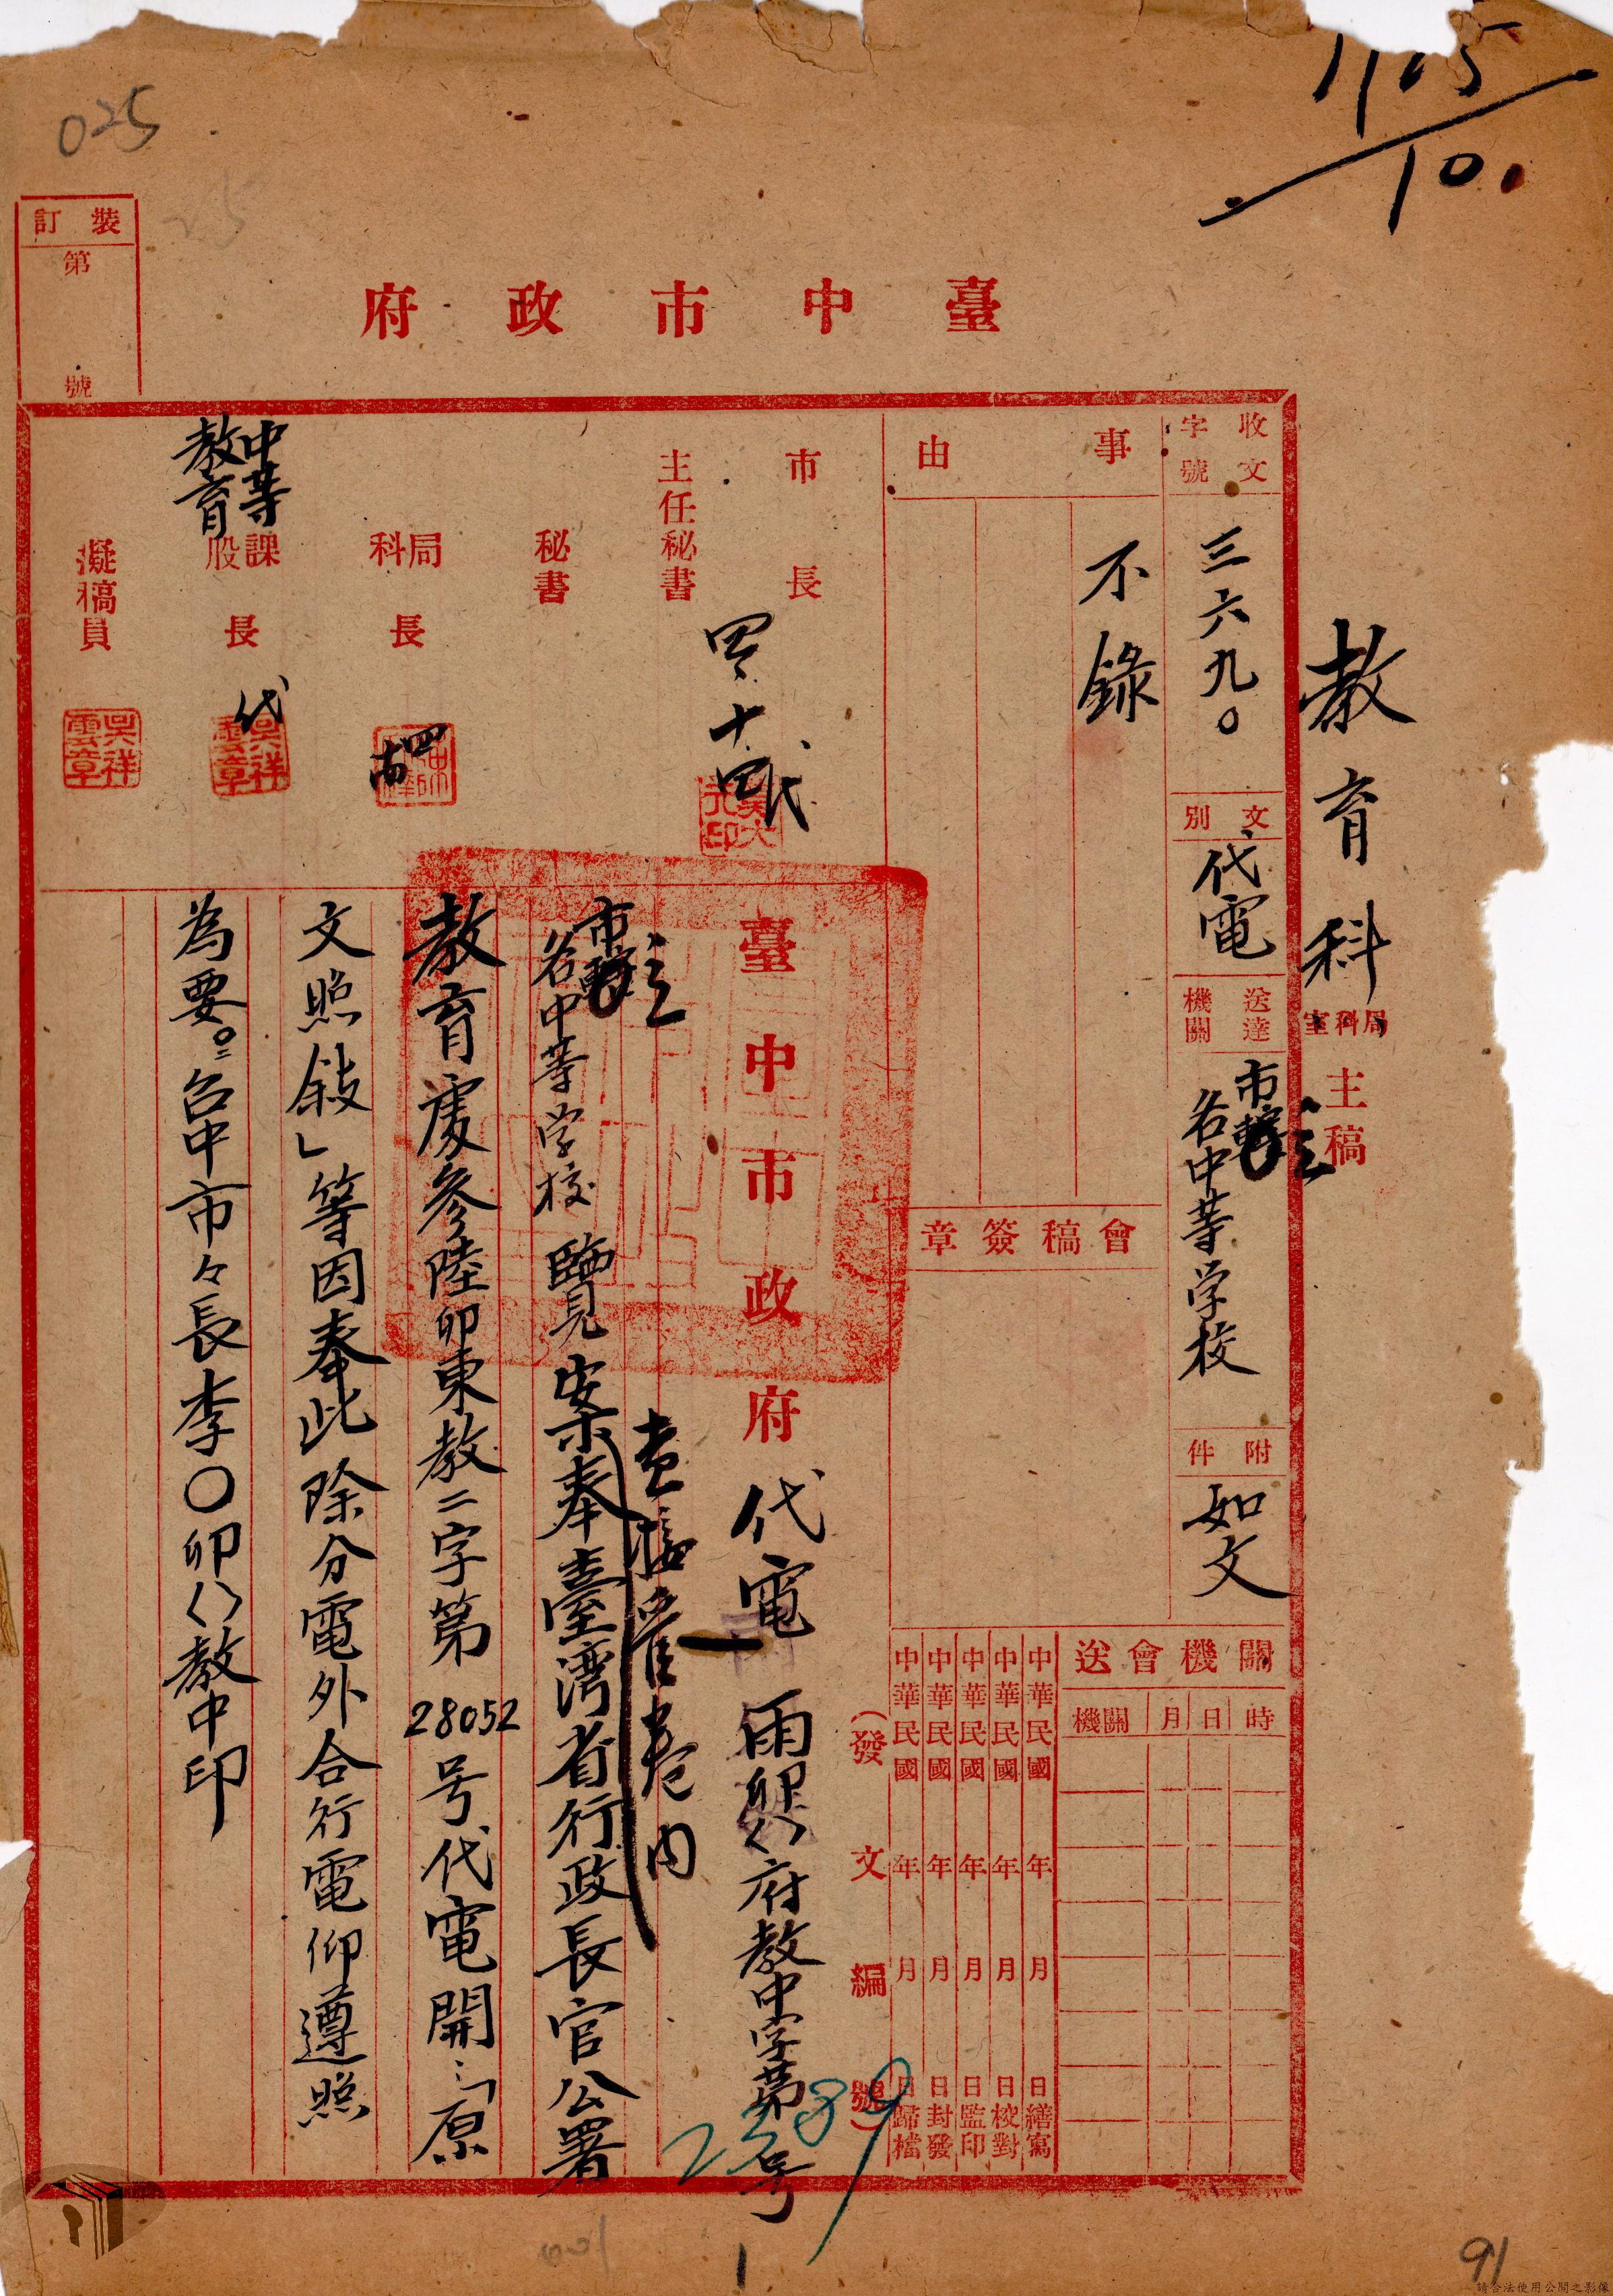 1105
10.
025
25
裝訂
第
號
臺中市政府
教育科
局科室
主稿
收文
字號
三六九〇
文別
代電
送達
機關
市轄
各中等学校
附件
如文
事由
不錄
會稿簽章
關機會送
時日月機關
中華民國 年 月 日繕寫
中華民國 年 月 日校對
中華民國 年 月 日監印
中華民國 年 月 日封發
中華民國 年 月 日歸檔
(發文編號)
市長
四十四代
主任秘書
秘書
局科長
四
中等
教育
課股長
代
吳祥
雲章
擬稿員
吳祥
雲章
臺中市政府代電 卯 府教中字第2389号
市轄
各中等学校 覽案奉臺湾省行政長官公署
教育處參陸卯東教二字第28052号代電開:「原
文照敍」等因奉此除分電外合行電仰遵照
為要。台中市々長李〇卯 教中印
1
91
請合法使用公開之影像